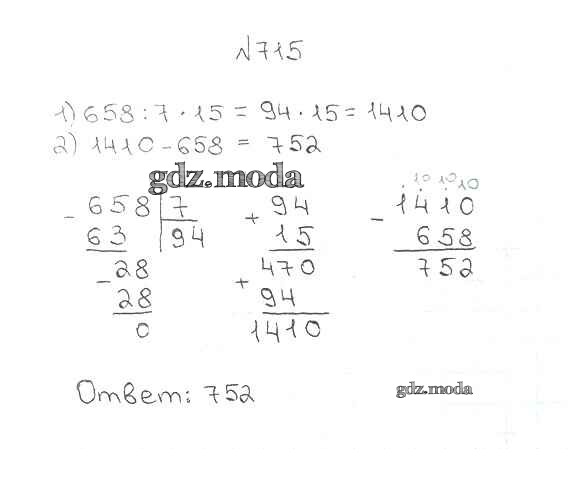 №715
1) 658 : 7 · 15 = 94 · 15 = 1410
2) 1410 - 658 = 752
gdz.moda
- 658 | 7
63 | 94
- 28
28
0
+ 94
15
470
+ 94
1410
10 10 10
- 1410
658
752
Ответ: 752
gdz.moda